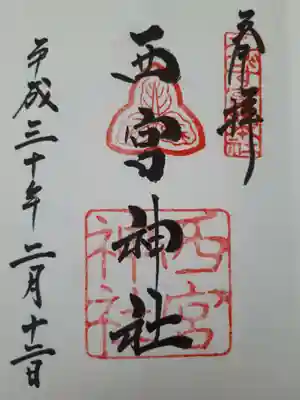 奉拝
西宮神社
西宮
神社
平成三十年二月十二日